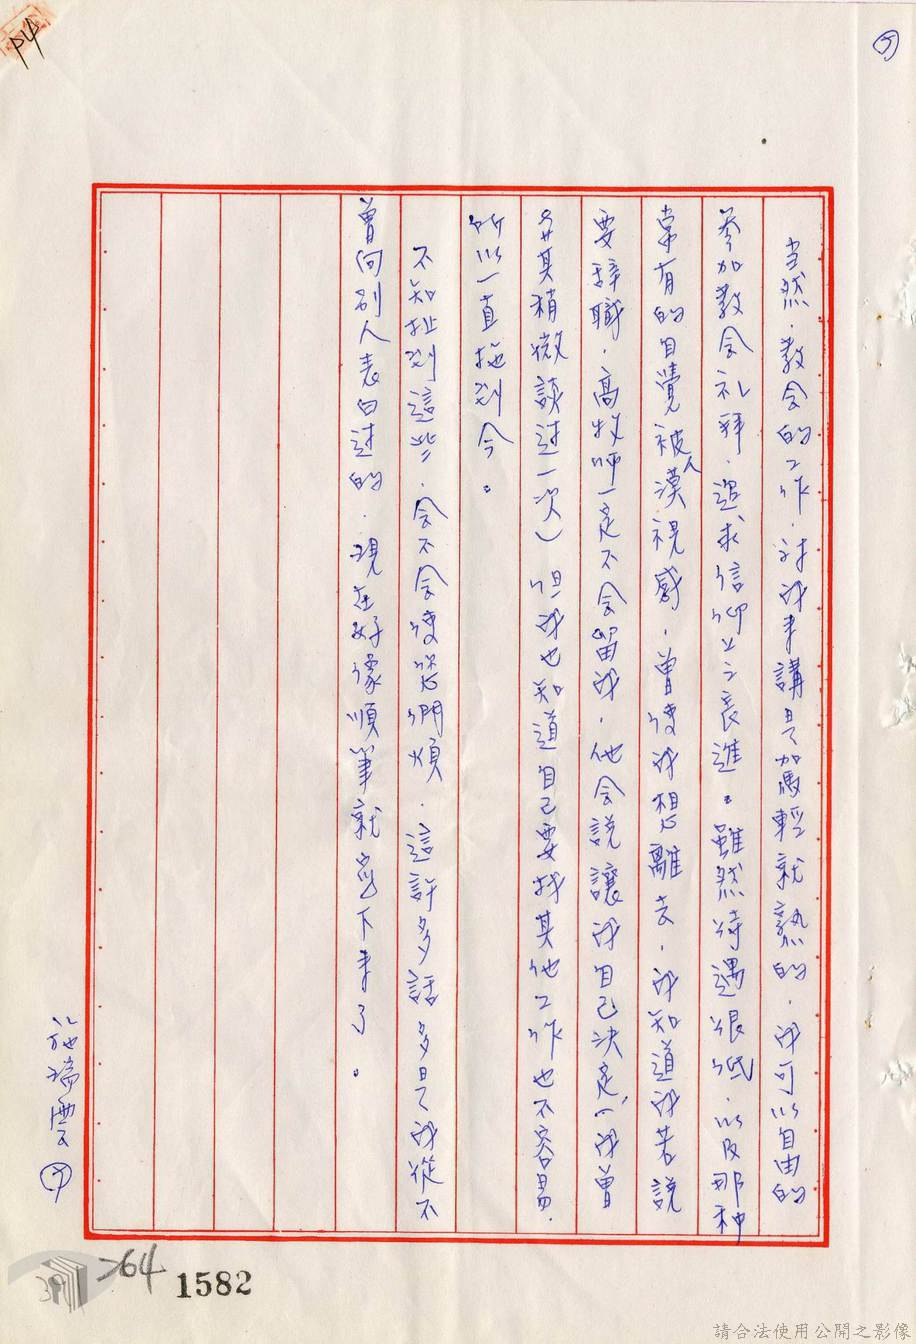 P4
⑦
当然.教会的工作.对我来講是加馬輕就熟的.我可以自由的
参加教会礼拜.追求信仰上之長進。雖然待遇很低.以及那种
常有的自覺被人漠視感.曾使我想離去.我知道我若說
要辞職.高牧师一定不会留我.他会說讓我自己決定.(我曾
与其稍微談过一次)但我也知道自己要找其他工作也不容易.
所以一直拖到今。
不知扯到這些.会不会使您們煩.這許多話多是我從不
曾向别人表白过的.現在好像順筆就寫下来了。
施瑞雲⑦
264
1582
請合法使用公開之影像